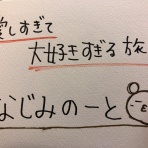 愛しすぎて
大好きすぎる旅
なじみのーと